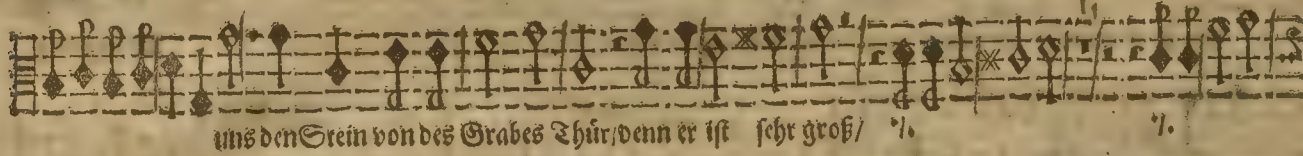 uns den Stein von des Grabes Thür/denn er ist sehr groß/ ·/. ·/.